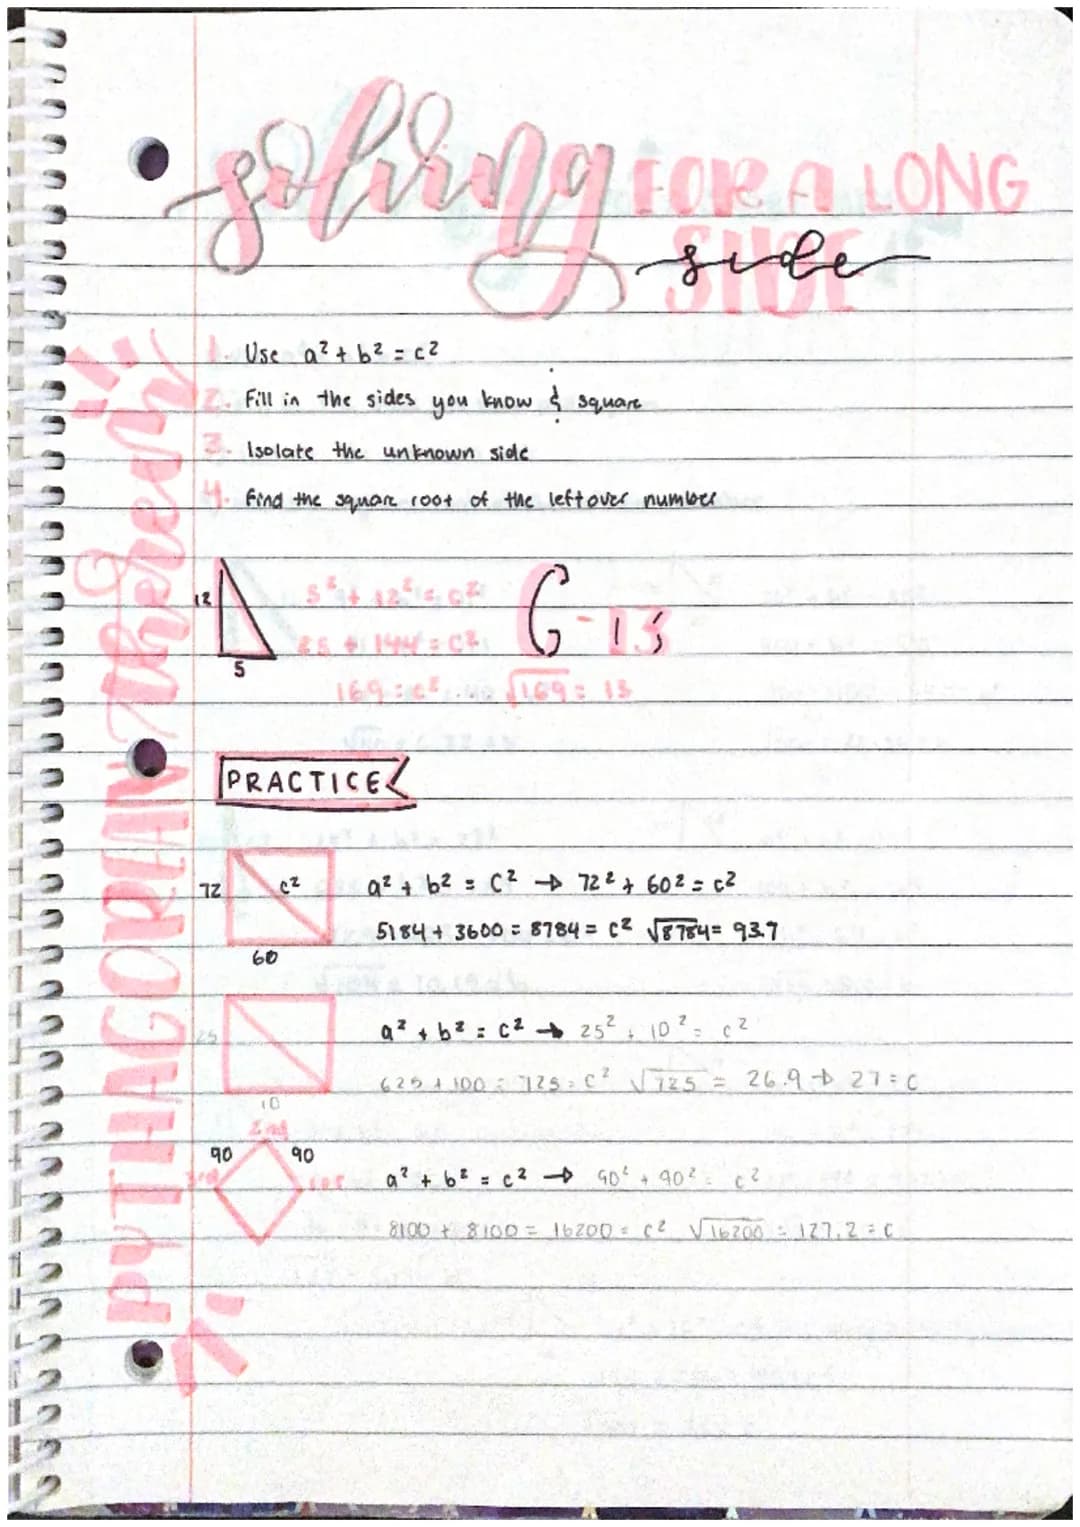 solving FOR A LONG
SIDE
side
PYTHAGOREAN theorem
1. Use a² + b² = c²
2. Fill in the sides you know & square
3. Isolate the unknown side
4. Find the square root of the leftover number
12
5
5² + 12² = c²
25 + 144 = c²
169 = c² √169 = 13
C - 13
PRACTICE
72 c² a² + b² = c² → 72² + 60² = c²
5184 + 3600 = 8784 = c² √8784 = 93.7
60
25 a² + b² = c² → 25² + 10² = c²
625 + 100 = 725 = c² √725 = 26.9 → 27 = c
10
2nd
90 90
3rd 1st a² + b² = c² → 90² + 90² = c²
8100 + 8100 = 16200 = c² √16200 = 127.2 = c